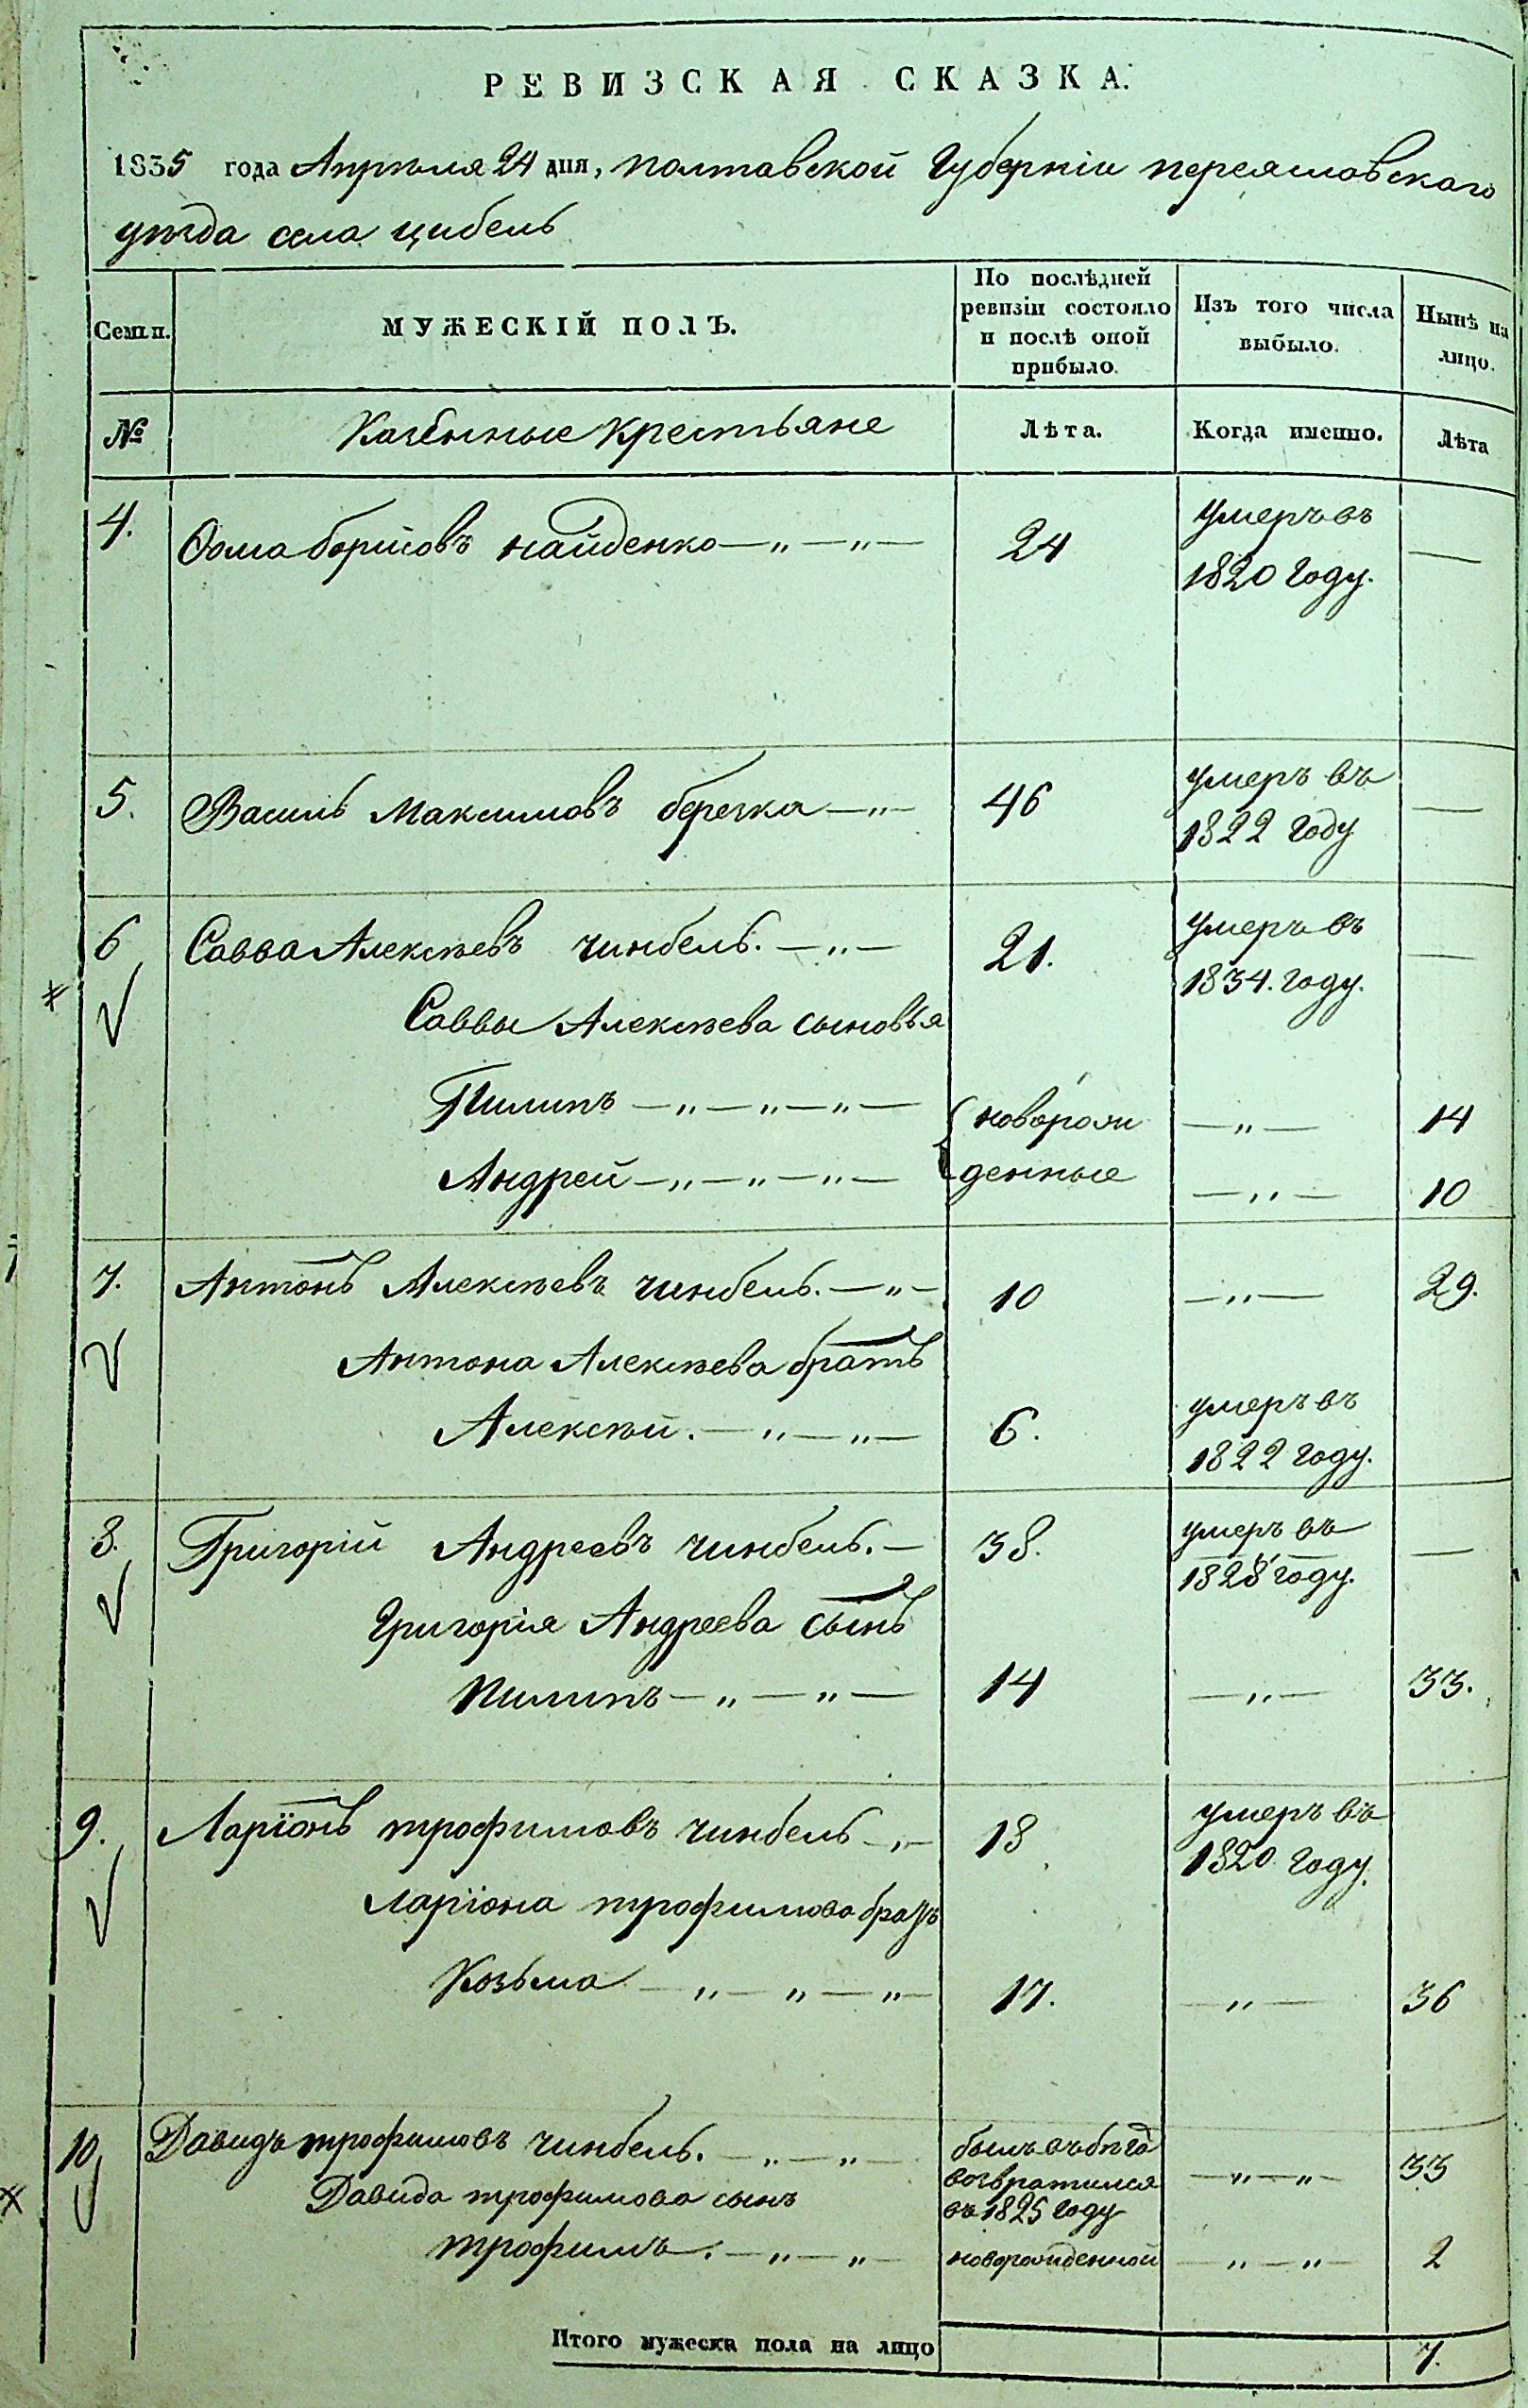 РЕВИЗСКАЯ СКАЗКА.
1835 года Апрѣля 24 дня, полтавской Губерніи переяславскаго
уѣзда села цибель
Семьи.
МУЖЕСКІЙ ПОЛЪ.
По послѣдней ревизіи состояло и послѣ оной прибыло.
Изъ того числа выбыло.
Нынѣ на лицо.
№ Казенные крестьяне Лѣта. Когда именно. Лѣта
4. Фома борисовъ найденко —„—„— 24 умеръ въ 1820 году. —
5. Василь Максимовъ беречка —„— 46 умеръ въ 1822 году —
6 Савва Алексѣевъ чинбель. —„— 21. умеръ въ 1834. году. —
Саввы Алексѣева сыновья
Пилипъ —„—„—„— новорож —„— 14
Андрей —„—„—„— денные —„— 10
7. Антонъ Алексѣевъ чинбель. —„— 10 —„— 29.
Антона Алексѣева братъ
Алексѣй. —„—„— 6. умеръ въ 1822 году.
8. Григорій Андреевъ чинбель. — 38. умеръ въ 1828 году. —
Григорія Андреева сынъ
Пилипъ —„—„— 14 —„— 33.
9. Ларіонъ трофимовъ чинбель —„— 18 умеръ въ 1820 году.
Ларіона трофимова братъ
Козьма —„—„—„— 17. —„— 36
10. Давидъ трофимовъ чинбель. —„—„— былъ въ бѣгахъ возвратился въ 1825 году —„—„— 33
Давида трофимова сынъ
трофимъ. —„—„— новорожденной —„—„— 2
Итого мужеска пола на лицо 7.